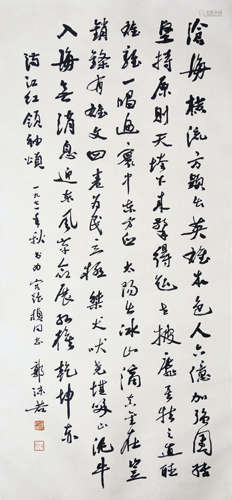 滄海橫流方顯出英雄本色人六億加強團結
堅持原則天垮下來擎得起世披靡矣扶之直聽
雄雞一唱遍寰中東方白太陽出冰山滴真金在豈
銷鑠有雄文四卷為民立極桀犬吠堯堪笑止泥牛
入海無消息迎東風革命展紅旗乾坤赤
滿江紅領袖頌
一九七一年秋書為同志 郭沫若